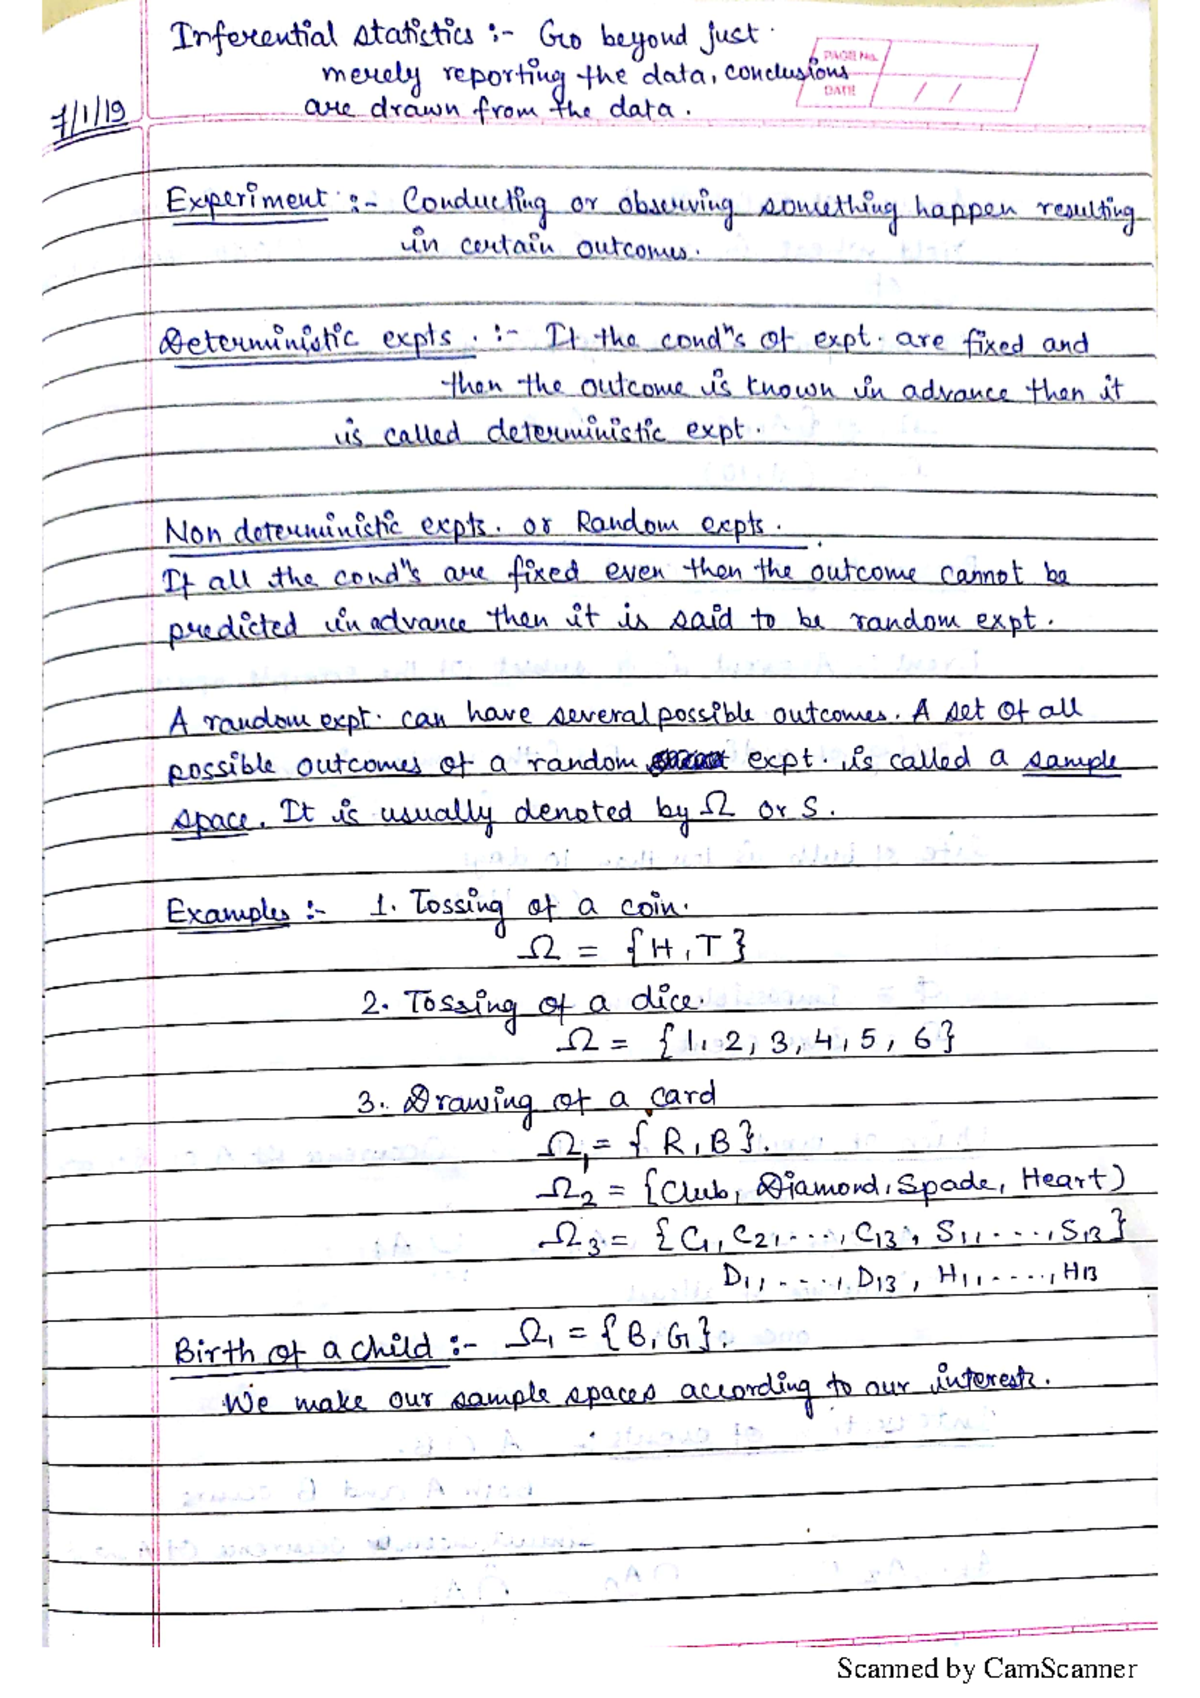 Inferential statistics :- Go beyond just
merely reporting the data, conclusions
are drawn from the data.
PAGE No.
DATE / /
7/1/19
Experiment :- Conducting or observing something happen resulting
in certain outcomes.
Deterministic expts. :- If the condⁿs of expt. are fixed and
then the outcome is known in advance then it
is called deterministic expt.
Non deterministic expts. or Random expts.
If all the condⁿs are fixed even then the outcome cannot be
predicted in advance then it is said to be random expt.
A random expt. can have several possible outcomes. A set of all
possible outcomes of a random expt. is called a sample
space. It is usually denoted by Ω or S.
Examples :- 1. Tossing of a coin.
Ω = {H, T}
2. Tossing of a dice.
Ω = {1, 2, 3, 4, 5, 6}
3. Drawing of a card
Ω₁ = {R, B}.
Ω₂ = {Club, Diamond, Spade, Heart)
Ω₃ = {C₁, C₂, ..., C₁₃, S₁, ..., S₁₃}
D₁, ...., D₁₃, H₁, ...., H₁₃
Birth of a child :- Ω₁ = {B, G}.
We make our sample spaces according to our interest.
Scanned by CamScanner